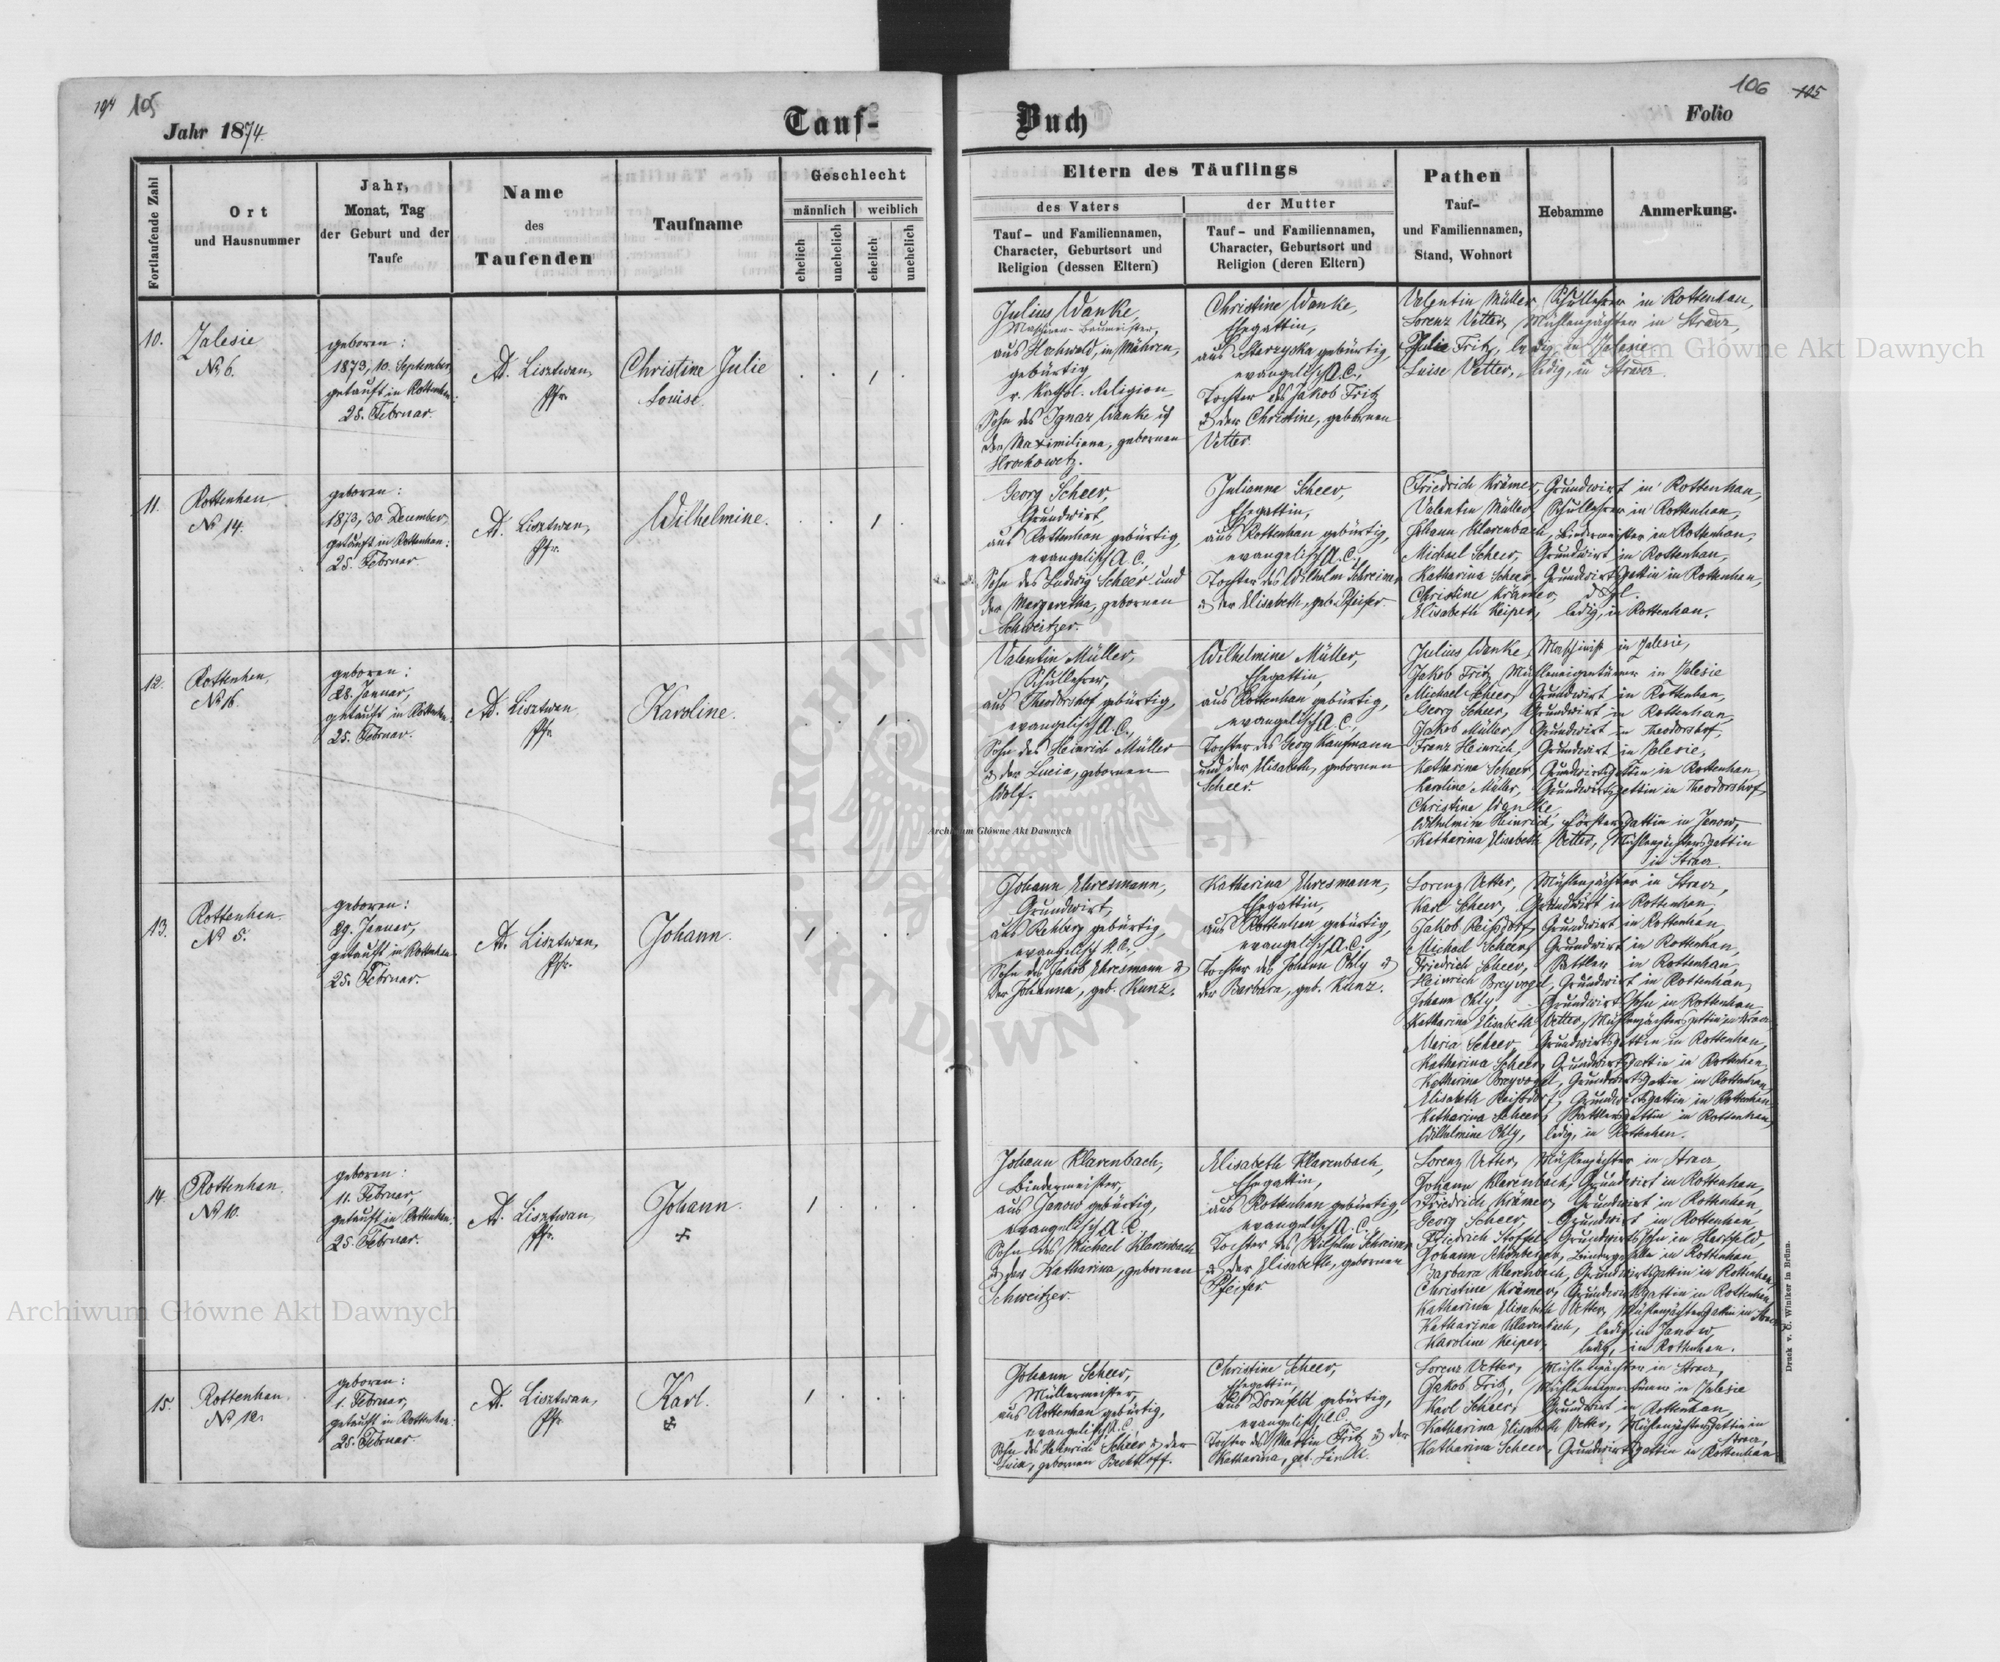 194 105
Jahr 1874.
Tauf-
Fortlaufende Zahl
Ort
und Hausnummer
Jahr,
Monat, Tag
der Geburt und der
Taufe
Name
des
Taufenden
Taufname
Geschlecht
männlich
weiblich
ehelich
unehelich
ehelich
unehelich
10.
Zalesie
No 6.
geboren:
1873, 10. September,
getauft in Rottenhan:
25. Februar.
Ad. Lisztwan,
Pfr.
Christine Julie
Louise.
11.
Rottenhan
No 14.
geboren:
1873, 30. December,
getauft in Rottenhan:
25. Februar
Ad. Lisztwan,
Pfr.
Wilhelmine.
12.
Rottenhan,
No 16.
geboren:
28. Januar,
getauft in Rottenhan:
25. Februar.
Ad. Lisztwan
Pfr.
Karoline.
13.
Rottenhan.
No 5.
geboren:
29. Januar,
getauft in Rottenhan
25. Februar.
Ad. Lisztwan,
Pfr.
Johann.
14.
Rottenhan.
No 10.
geboren:
11. Februar,
getauft in Rottenhan:
25. Februar.
Ad. Lisztwan,
Pfr.
Johann.
15.
Rottenhan.
No 12.
geboren:
1. Februar,
getauft in Rottenhan:
25. Februar.
Ad. Lisztwan,
Pfr.
Karl.
106 105
Buch
Folio
Eltern des Täuflings
des Vaters
Tauf- und Familiennamen,
Character, Geburtsort und
Religion (dessen Eltern)
der Mutter
Tauf- und Familiennamen,
Character, Geburtsort und
Religion (deren Eltern)
Pathen
Tauf-
und Familiennamen,
Stand, Wohnort
Hebamme
Anmerkung.
Julius Wanke,
Maschinen-Baumeister,
aus Hochwald, in Mähren,
gebürtig
r. kathol. Religion
Sohn des Ignaz Wanke u
der Maximiliana, gebornen
Hrochowetz.
Christine Wanke,
Ehegattin,
aus Starzyska gebürtig,
evangelisch A.C.,
Tochter des Jakob Fritz
u der Christine, gebornen
Vetter.
Valentin Müller, Schullehrer in Rottenhan,
Lorenz Vetter, Mühlenpächter in Stracz,
Julie Fritz, ledig, in Zalesie
Luise Vetter, ledig, in Stracz.
Georg Scheer,
Grundwirt,
aus Rottenhan gebürtig,
evangelisch A.C.,
Sohn des Ludwig Scheer und
der Margaretha, gebornen
Schweitzer.
Julianne Scheer,
Ehegattin,
aus Rottenhan gebürtig,
evangelisch A.C.,
Tochter des Wilhelm Schreiner
u der Elisabeth, geb. Pfeifer.
Friedrich Krämer, Grundwirt in Rottenhan,
Valentin Müller, Schullehrer in Rottenhan,
Johann Klarenbach, Bindermeister in Rottenhan,
Michael Scheer, Grundwirt in Rottenhan,
Katharina Scheer, Grundwirtsgattin in Rottenhan,
Christine Krämer, dsgl.
Elisabeth Keiper, ledig, in Rottenhan.
Valentin Müller,
Schullehrer,
aus Theodorshof gebürtig,
evangelisch A.C.,
Sohn des Heinrich Müller
u der Lucia, gebornen
Wolf.
Wilhelmine Müller,
Ehegattin,
aus Rottenhan gebürtig,
evangelisch A.C.,
Tochter des Georg Kaufmann
und der Elisabeth, gebornen
Scheer.
Julius Wanke, Maschinist in Zalesie,
Jakob Fritz, Mühleneigentümer in Zalesie
Michael Scheer, Grundwirt in Rottenhan,
Georg Scheer, Grundwirt in Rottenhan,
Jakob Müller, Grundwirt in Theodorshof,
Franz Heinrich, Grundwirt in Zalesie,
Katharina Scheer, Grundwirtsgattin in Rottenhan,
Karoline Müller, Grundwirtsgattin in Theodorshof,
Christine Wanke,
Wilhelmine Heinrich, Förstersgattin in Janow,
Katharina Elisabeth Vetter, Mühlenpächtersgattin
in Stracz.
Johann Ehresmann,
Grundwirt,
aus Rehberg gebürtig,
evangelisch A.C.,
Sohn des Jakob Ehresmann u
der Johanna, geb. Kunz.
Katharina Ehresmann,
Ehegattin,
aus Rottenhan gebürtig,
evangelisch A.C.,
Tochter des Johann Ohly u
der Barbara, geb. Kunz.
Lorenz Vetter, Mühlenpächter in Stracz,
Karl Scheer, Grundwirt in Rottenhan,
Jakob Reißdorf, Grundwirt in Rottenhan,
Michael Scheer, Grundwirt in Rottenhan,
Friedrich Scheer, Sattler in Rottenhan,
Heinrich Breyvogel, Grundwirt in Rottenhan,
Johann Ohly, Grundwirtssohn in Rottenhan
Katharina Elisabeth Vetter, Mühlenpächtersgattin in Stracz
Maria Scheer, Grundwirtsgattin in Rottenhan,
Katharina Scheer, Grundwirtsgattin in Rottenhan,
Katharina Breyvogel, Grundwirtsgattin in Rottenhan,
Elisabeth Reißdorf, Grundwirtsgattin in Rottenhan
Katharina Scheer, Sattlersgattin in Rottenhan,
Wilhelmine Ohly, ledig, in Rottenhan.
Johann Klarenbach,
Bindermeister,
aus Janow gebürtig,
evangelisch A.C.
Sohn des Michael Klarenbach
u der Katharina, gebornen
Schweitzer
Elisabeth Klarenbach,
Ehegattin,
aus Rottenhan gebürtig,
evangelisch A.C.
Tochter des Wilhelm Schreiner
u der Elisabeth, gebornen
Pfeifer.
Lorenz Vetter, Mühlenpächter in Stracz,
Johann Klarenbach, Grundwirt in Rottenhan,
Friedrich Krämer, Grundwirt in Rottenhan,
Georg Scheer, Grundwirt in Rottenhan,
Friedrich Stoffel, Grundwirtssohn in Hartfeld,
Johann Schönberger, Bindergeselle in Rottenhan
Barbara Klarenbach, Grundwirtsgattin in Rottenhan,
Christine Krämer, Grundwirtsgattin in Rottenhan,
Katharina Elisabeth Vetter, Mühlenpächtersgattin in Stracz
Katharina Klarenbach, ledig, in Janow,
Karoline Keiper, ledig, in Rottenhan.
Johann Scheer,
Müllermeister
aus Rottenhan gebürtig,
evangelisch A.C.
Sohn des Heinrich Scheer u der
Lucia, gebornen Bechtloff.
Christine Scheer,
Ehegattin,
aus Dornfeld gebürtig,
evangelisch A.C.
Tochter des Martin Fritz u der
Katharina, geb.
Lorenz Vetter, Mühlenpächter in Stracz,
Jakob Fritz, Mühleneigentümer in Zalesie
Karl Scheer, Grundwirt in Rottenhan,
Katharina Elisabeth Vetter, Mühlenpächtersgattin in
Stracz,
Katharina Scheer, Grundwirtsgattin in Rottenhan
Druck v. C. Winiker in Brünn.
Archiwum Główne Akt Dawnych
Archiwum Główne Akt Dawnych
Archiwum Główne Akt Dawnych
ARCHIWUM GŁÓWNE AKT DAWNYCH